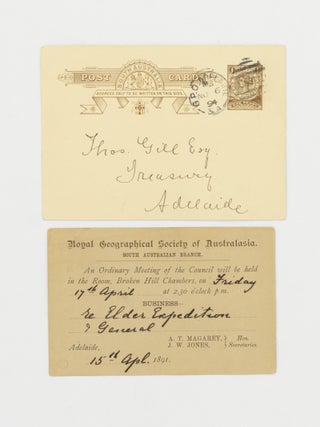 SOUTH AUSTRALIA
POST CARD
ADDRESS ONLY TO BE WRITTEN ON THIS SIDE.
Thos. Gill Esq.
Treasury
Adelaide
Royal Geographical Society of Australasia.
SOUTH AUSTRALIAN BRANCH.
An Ordinary Meeting of the Council will be held
in the Room, Broken Hill Chambers, on Friday
17th April at 2.30 o'clock p.m.
BUSINESS:-
re Elder Expedition
& General
A. T. MAGAREY, } Hon.
J. W. JONES, } Secretaries.
Adelaide,
15th Apl. 1891.